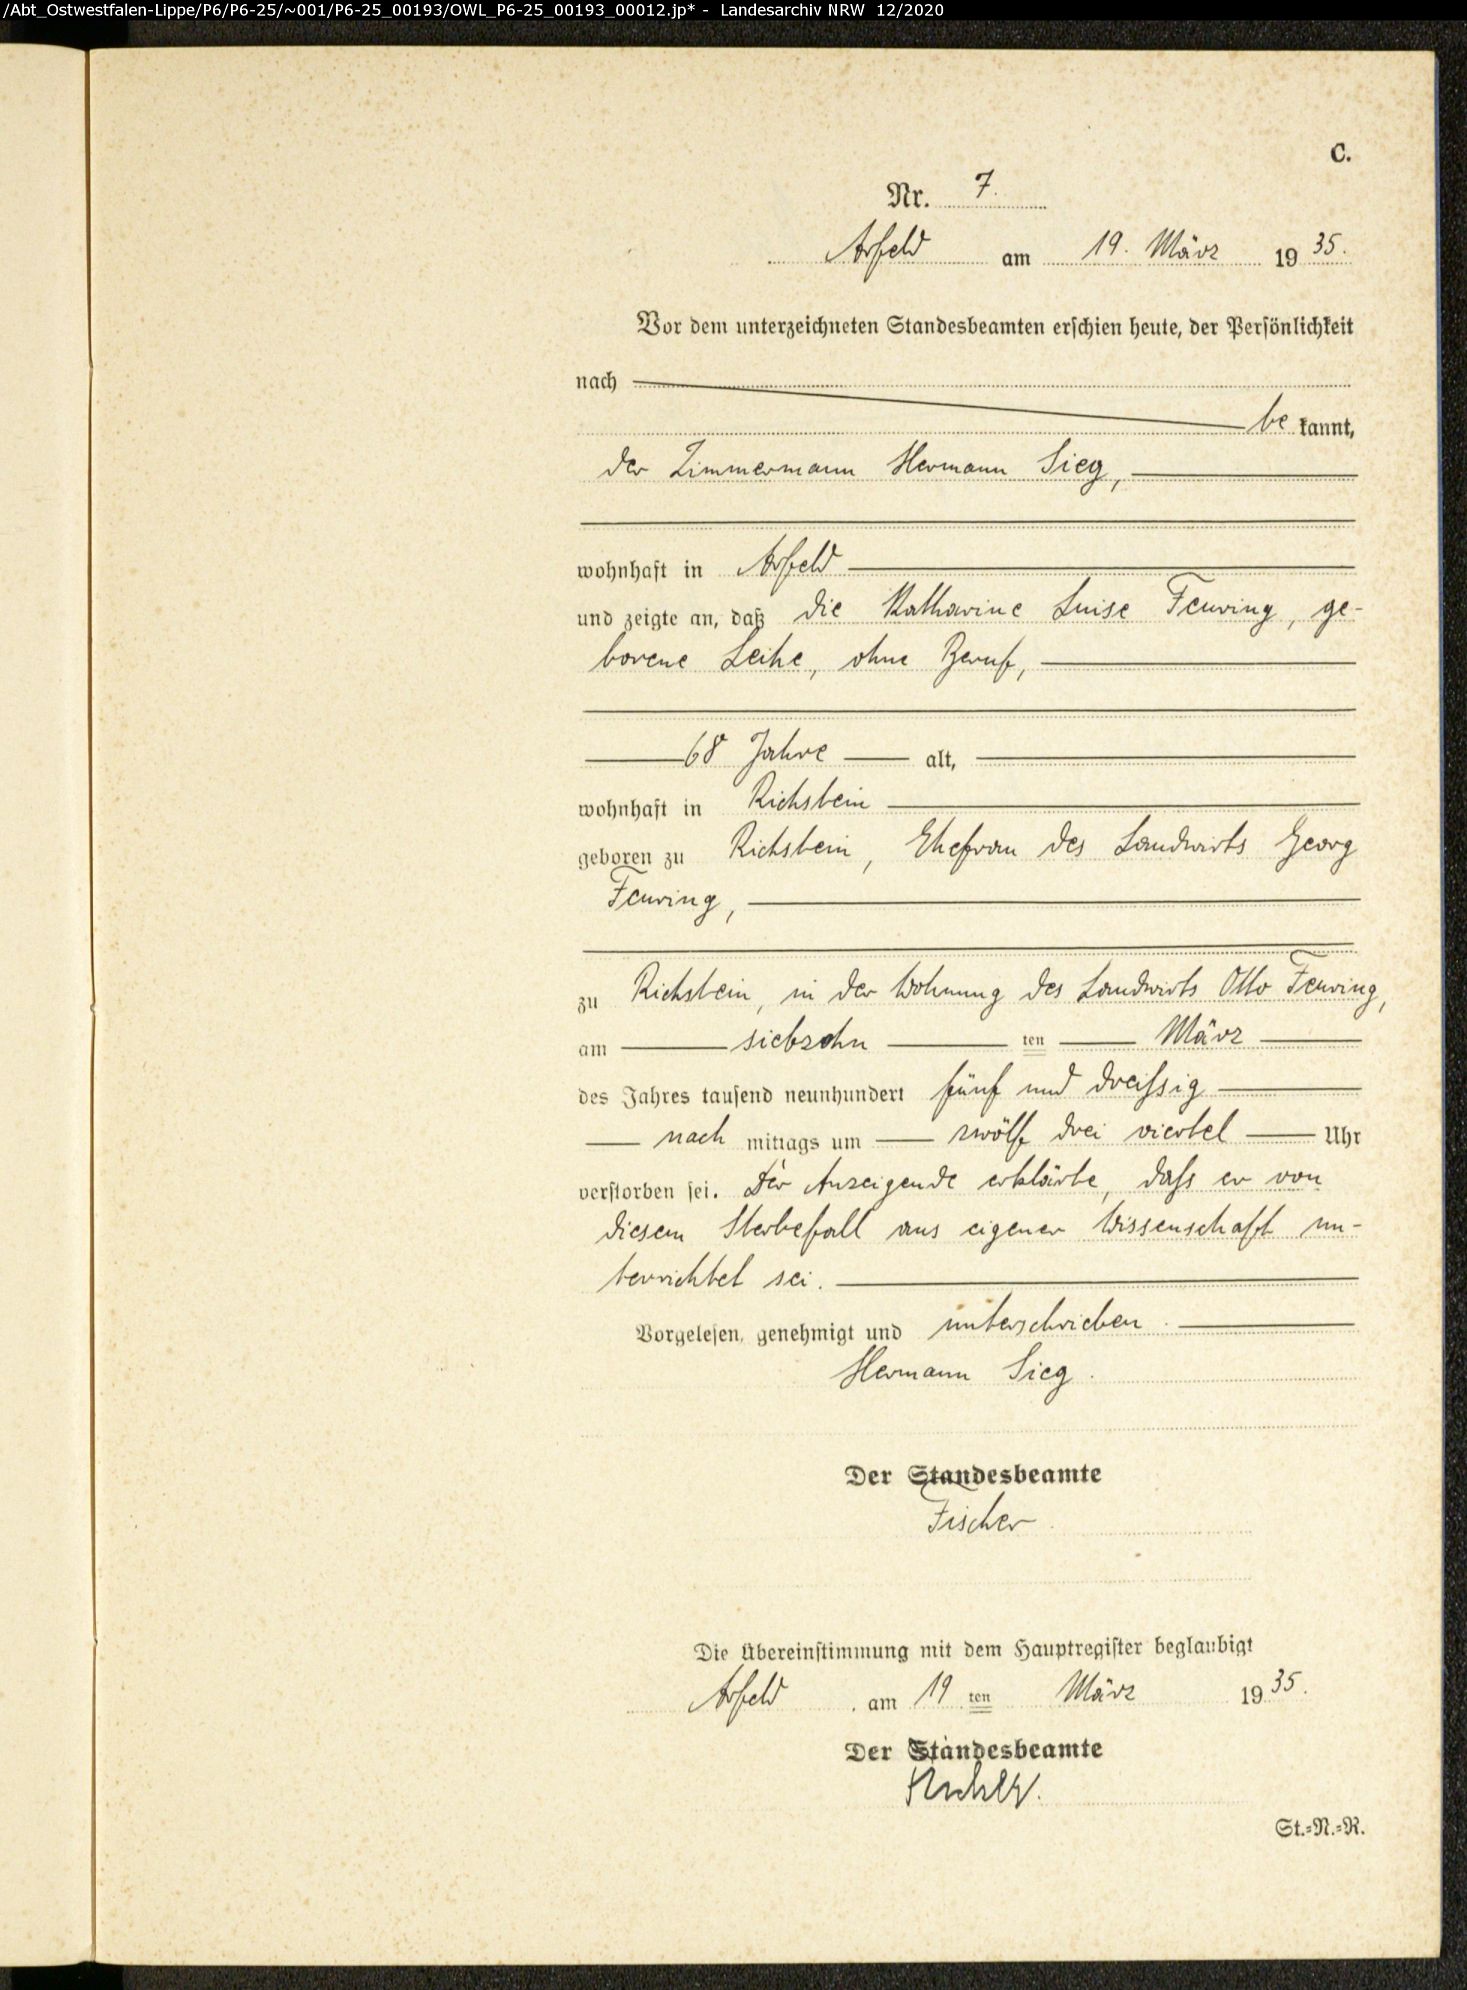 /Abt_Ostwestfalen-Lippe/P6/P6-25/~001/P6-25_00193/OWL_P6-25_00193_00012.jp* - Landesarchiv NRW 12/2020
C.
Nr. 7.
Arfeld am 19. März 1935.
Vor dem unterzeichneten Standesbeamten erschien heute, der Persönlichkeit
nach
be kannt,
der Zimmermann Hermann Sieg,
wohnhaft in Arfeld
und zeigte an, daß die Katharine Luise Feuring, ge-
borene Leihe, ohne Beruf,
68 Jahre alt,
wohnhaft in Richstein
geboren zu Richstein, Ehefrau des Landwirts Georg
Feuring,
zu Richstein, in der Wohnung des Landwirts Otto Feuring,
am siebzehn ten März
des Jahres tausend neunhundert fünf und dreissig
nach mittags um zwölf drei viertel Uhr
verstorben sei. Der Anzeigende erklärte, dass er von
diesem Sterbefall aus eigener Wissenschaft un-
terrichtet sei.
Vorgelesen, genehmigt und unterschrieben.
Hermann Sieg.
Der Standesbeamte
Fischer
Die Übereinstimmung mit dem Hauptregister beglaubigt
Arfeld am 19 ten März 1935.
Der Standesbeamte
St.=N.=R.